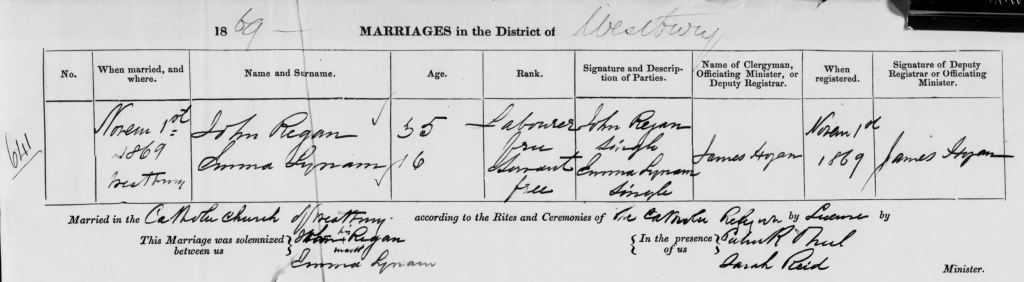 1869 — MARRIAGES in the District of Westbury
No.
When married, and where.
Name and Surname.
Age.
Rank.
Signature and Description of Parties.
Name of Clergyman, Officiating Minister, or Deputy Registrar.
When registered.
Signature of Deputy Registrar or Officiating Minister.
641
Novem 1st
1869
Westbury
John Regan
Emma Lynam
35
16
Labourer
free
Servant
free
John Regan
Single
Emma Lynam
Single
James Hogan
Novem 1st
1869
James Hogan
Married in the Catholic Church of Westbury according to the Rites and Ceremonies of The Catholic Religion by License by
This Marriage was solemnized between us
John his mark Regan
Emma Lynam
In the presence of us
Sarah Reid
Minister.